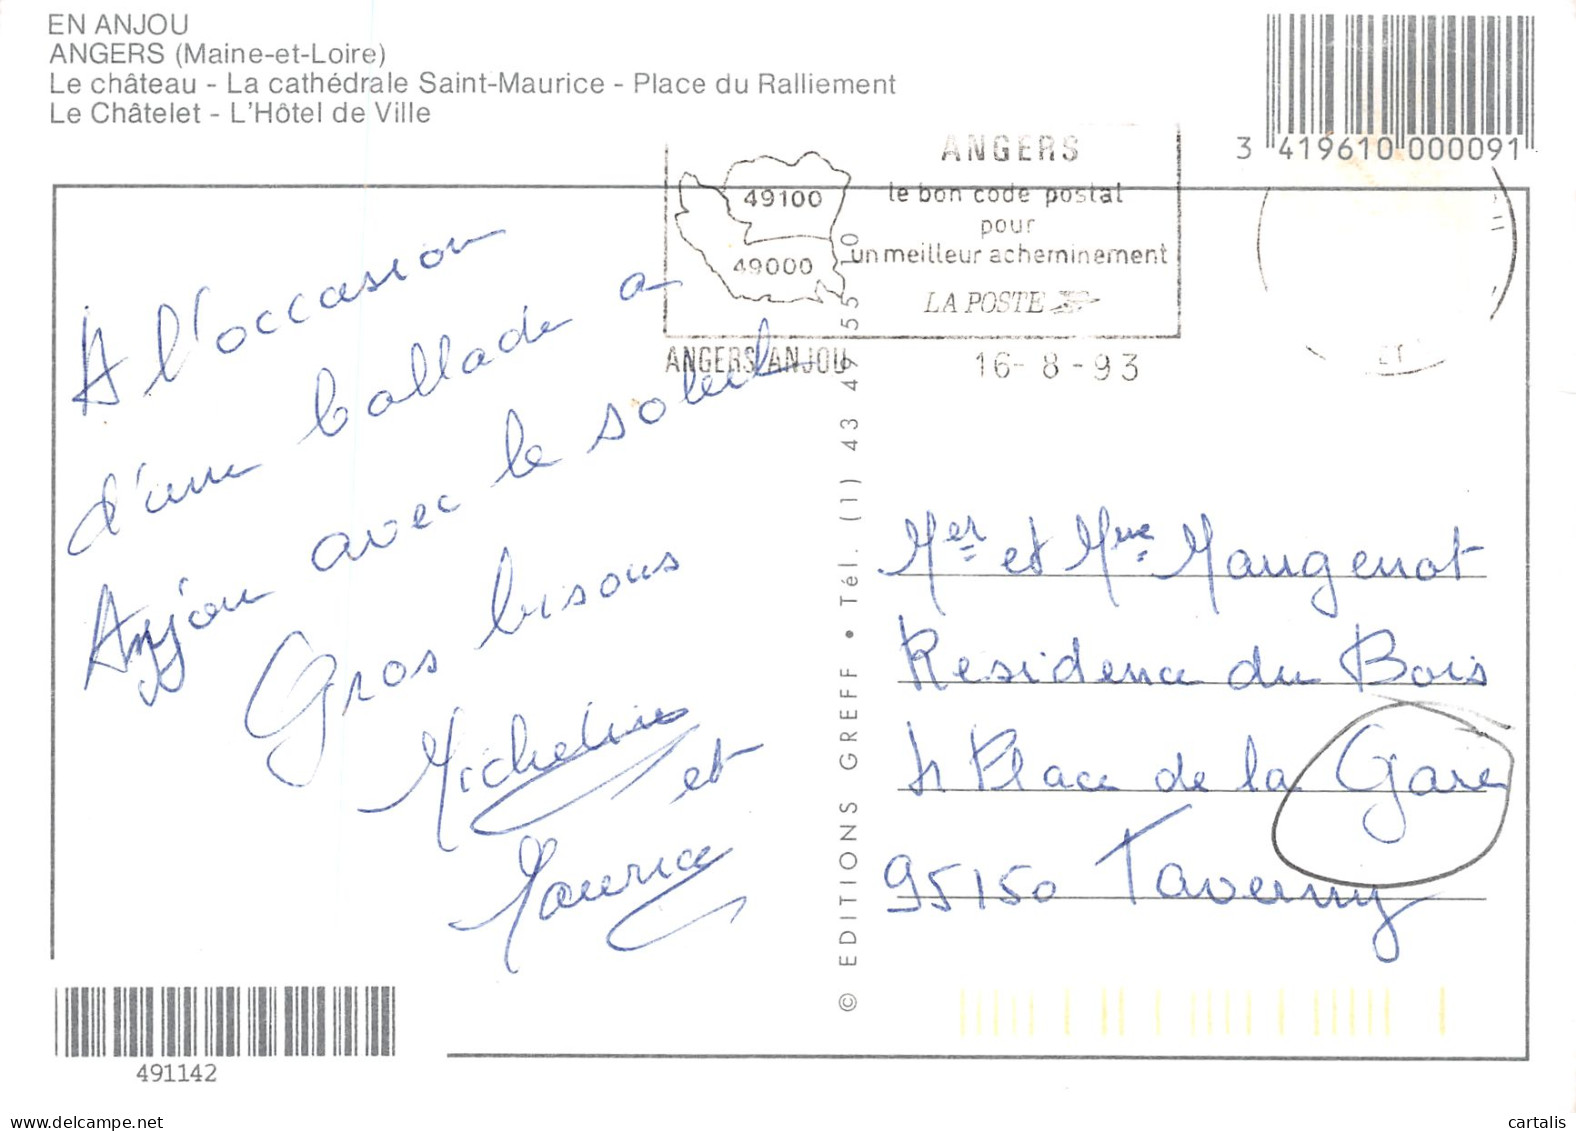 EN ANJOU
ANGERS (Maine-et-Loire)
Le château - La cathédrale Saint-Maurice - Place du Ralliement
Le Châtelet - L'Hôtel de Ville
3 419610 000091
ANGERS
le bon code postal
pour
un meilleur acheminement
LA POSTE
49100
49000
ANGERS ANJOU
16-8-93
A l'occasion
d'une ballade a
Anjou avec le soleil
Gros bisous
Micheline
et
Maurice
© EDITIONS GREFF • Tél. (1) 43 49 55 10
Mer et Mme Maugenot
Residence du Bois
4 Place de la Gare
95150 Taverny
491142
delcampe.net
cartalis